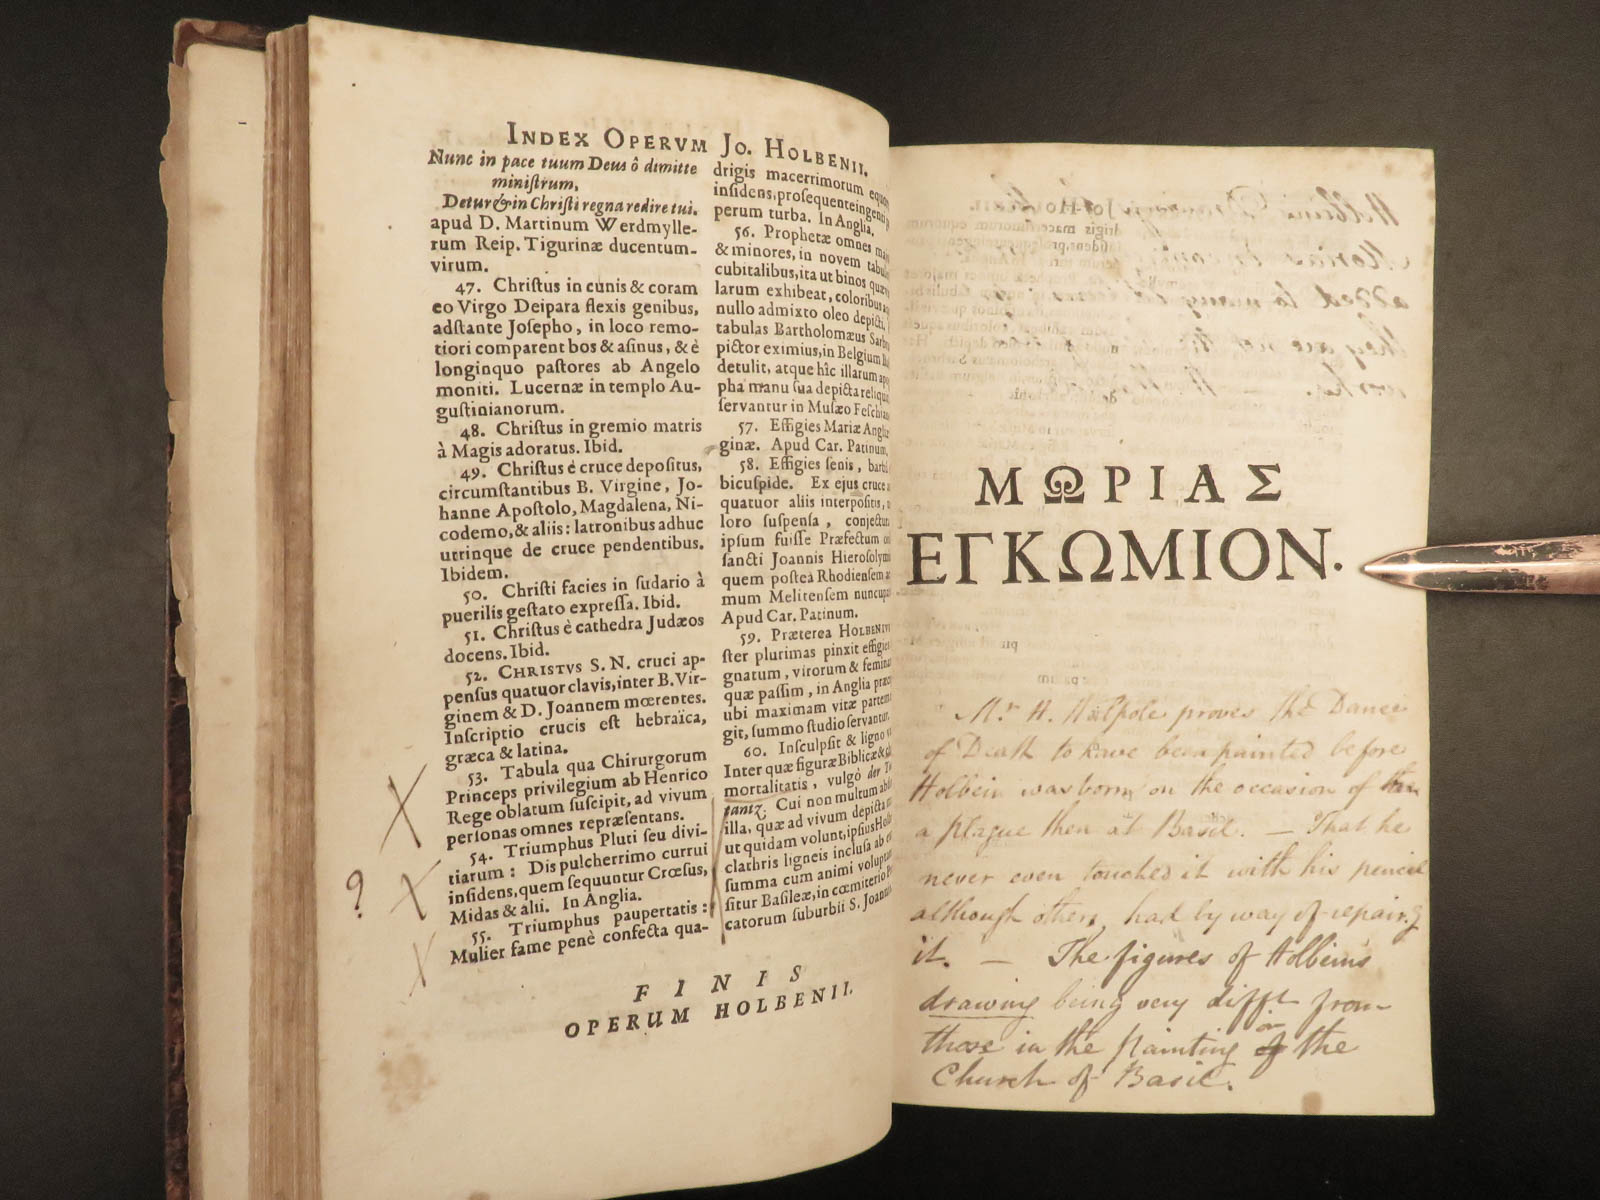 INDEX OPERVM JO. HOLBENII.
Nunc in pace tuum Deus ô dimitte
miniſtrum,
Detur & in Chriſti regna redire tui.
apud D. Martinum Werdmylle-
rum Reip. Tigurinæ ducentum-
virum.
47. Chriſtus in cunis & coram
eo Virgo Deipara flexis genibus,
adſtante Joſepho, in loco remo-
tiori comparent bos & aſinus, & è
longinquo paſtores ab Angelo
moniti. Lucernæ in templo Au-
guſtinianorum.
48. Chriſtus in gremio matris
à Magis adoratus. Ibid.
49. Chriſtus è cruce depoſitus,
circumſtantibus B. Virgine, Jo-
hanne Apoſtolo, Magdalena, Ni-
codemo, & aliis: latronibus adhuc
utrinque de cruce pendentibus.
Ibidem.
50. Chriſti facies in ſudario à
puerilis geſtato expreſſa. Ibid.
51. Chriſtus è cathedra Judæos
docens. Ibid.
52. CHRISTVS S. N. cruci ap-
penſus quatuor clavis, inter B. Vir-
ginem & D. Joannem mœrentes.
Inſcriptio crucis eſt hebraïca,
græca & latina.
53. Tabula qua Chirurgorum
Princeps privilegium ab Henrico
Rege oblatum ſuſcipit, ad vivum
perſonas omnes repræſentans.
54. Triumphus Pluti ſeu divi-
tiarum: Dis pulcherrimo currui
inſidens, quem ſequuntur Crœſus,
Midas & alii. In Anglia.
55. Triumphus paupertatis:
Mulier fame penè confecta qua-
drigis macerrimorum
inſidens, proſequente ingenti
perum turba. In Anglia.
56. Prophetæ omnes
& minores, in novem
cubitalibus, ita ut binos
larum exhibeat, coloribus
nullo admixto oleo depicti,
tabulas Bartholomæus
pictor eximius, in Belgium
detulit, atque hîc illarum
pha manu ſua depicta
ſervantur in Muſæo
57. Effigies Mariæ
ginæ. Apud Car. Patinum.
58. Effigies ſenis,
bicuſpide. Ex ejus cruce
quatuor aliis interpoſitis,
loro ſuſpenſa,
ipſum fuiſſe Præfectum
ſancti Joannis
quem poſtea Rhodienſem
mum Melitenſem
Apud Car. Patinum.
59. Præterea
ſter plurimas pinxit
gnatum, virorum &
quæ paſſim, in Anglia
ubi maximam vitæ
git, ſummo ſtudio ſervantur.
60. Inſculpſit & ligno
Inter quæ figuræ Biblicæ &
mortalitatis, vulgò der
tantz. Cui non multum
illa, quæ ad vivum depicta
ut quidam volunt, ipſius
clathris ligneis incluſa
ſumma cum animi
ſitur Baſileæ, in cœmiterio
catorum ſuburbii S.
FINIS
OPERUM HOLBENII.
?
ΜΩΡΙΑΣ
ΕΓΚΩΜΙΟΝ.
Mr. H. Walpole proves the Dance
of Death to have been painted before
Holbein was born, on the occasion of
a plague then at Basil. — That he
never even touched it with his pencil
although others had by way of repairg
it. — The figures of Holbein's
drawing being very difft from
those in the painting on the
Church of Basil.